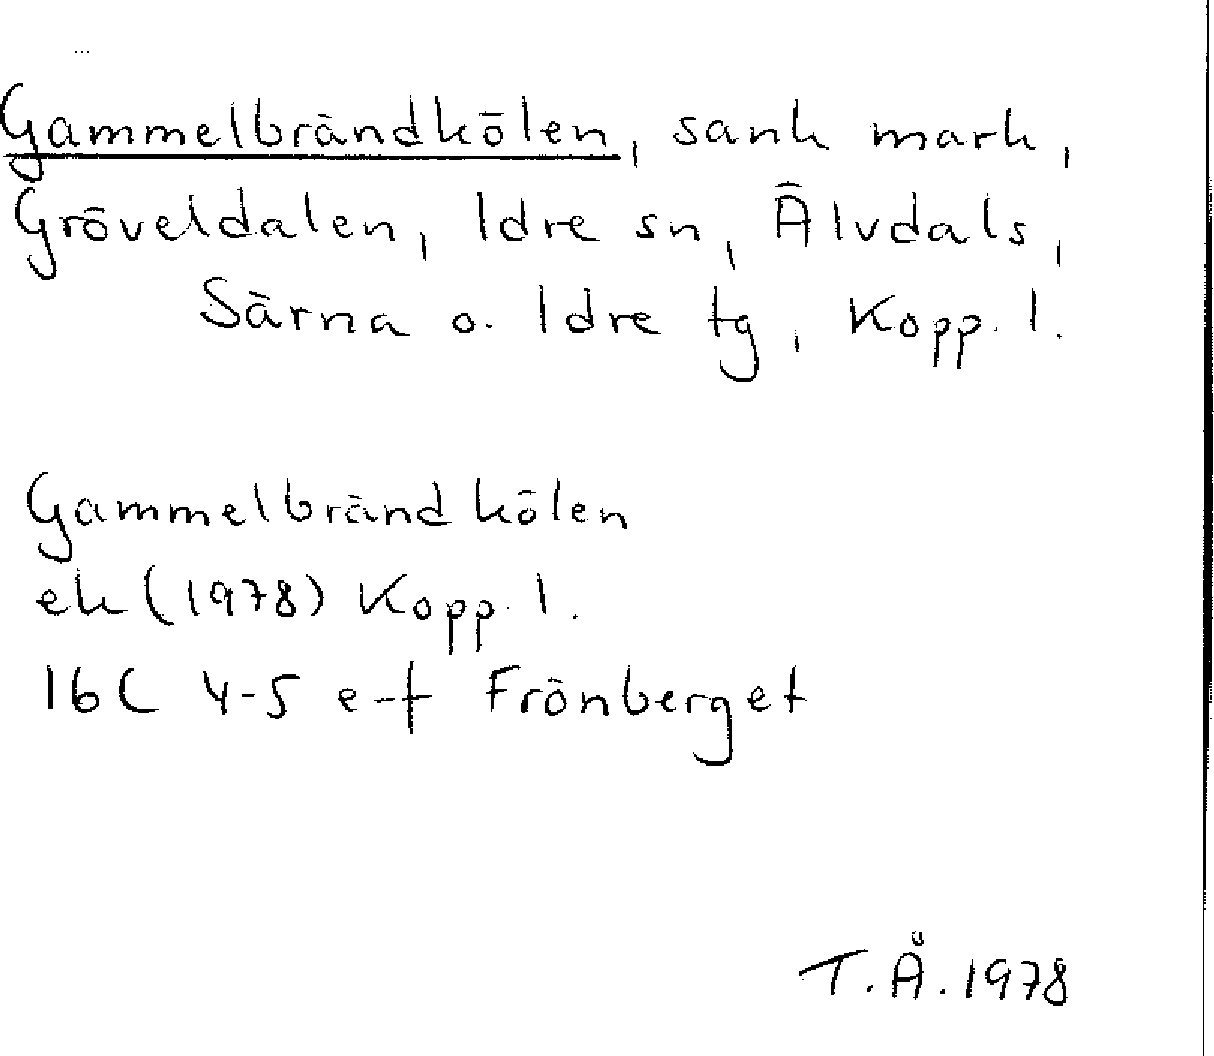 Gammelbrändkölen, sank mark,
Gröveldalen, Idre sn, Älvdals,
Särna o. Idre tg, Kopp. l.
Gammelbränd kölen
ek (1978) Kopp. l.
16C 4-5 e-f Frönberget
T.Å. 1978